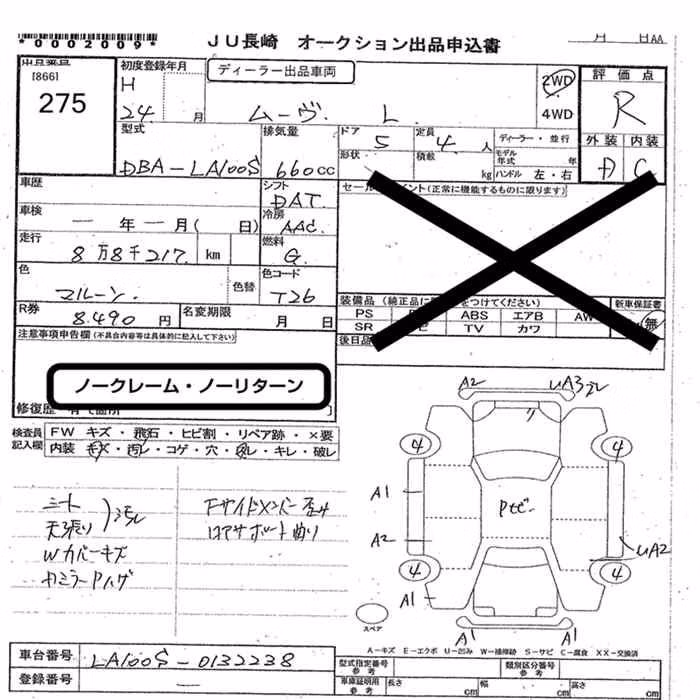 *0002009*
JU長崎 オークション出品申込書
月 日AA
[866]
275
初度登録年月
H
24 月
ディーラー出品車両
ムーヴ L
2WD
4WD
評価点
R
外装 内装
D C
型式
DBA-LA100S
排気量
660cc
ドア
5
定員
4人
ディーラー・並行
形状
積載
kg
モデル年式 年
ハンドル 左・右
車歴
シフト
DAT
セールスポイント(正常に機能するものに限ります)
車検
— 年 — 月( 日)
冷房
AAC
走行
8万8千217 km
燃料
G
色
マルーン
色替
色コード
T26
R券
8.490 円
名変期限
月 日
装備品(純正品に をつけてください)
新車保証書
PS ABS エアB AW
SR TV カワ
無
注意事項申告欄(不具合内容等は具体的に記入して下さい)
後日品
ノークレーム・ノーリターン
修復歴
検査員記入欄
FW キズ・飛石・ヒビ割・リペア跡・×要
内装 キズ・汚レ・コゲ・穴・剥レ・キレ・破レ
シート
天張り
汚レ
Wカバーキズ
Fサイドメンバー歪み
コアサポート曲り
A2
UA3
4
4
A1
A2
UA2
4
4
A1
A1
A1
スペア
A-キズ E-エクボ U-凹み W-補修跡 S-サビ C-腐食 XX-交換済
車台番号
LA100S-0132238
登録番号
—
型式指定番号
参考
類別区分番号
参考
車庫証明用
参考
長さ cm
幅 cm
高さ cm